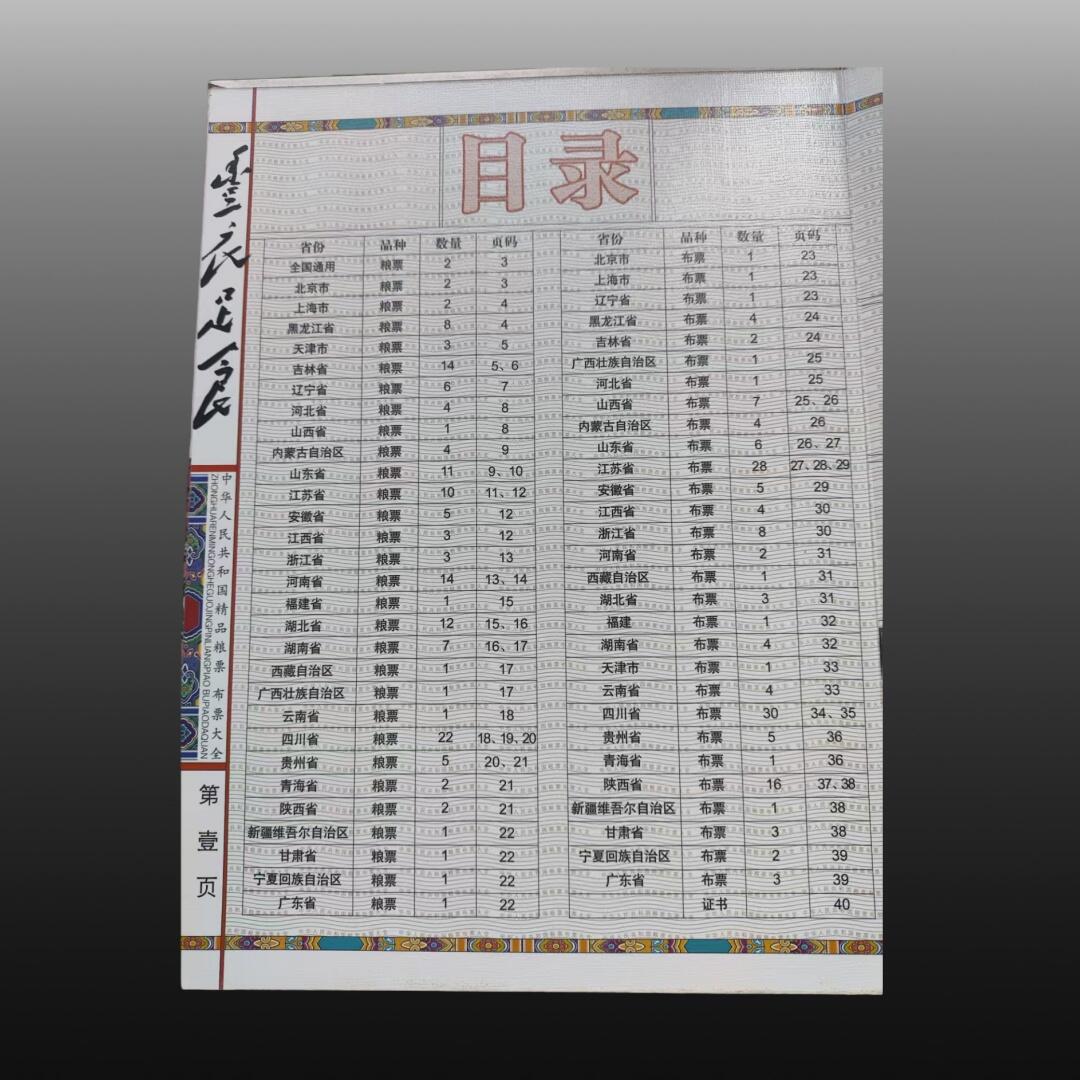 目录
丰衣足食
中华人民共和国精品粮票 布票大全
ZHONGHUARENMINGONGHEGUOJINGPINLIANGPIAO BUPIAODAQUAN
第壹页
省份 品种 数量 页码
全国通用 粮票 2 3
北京市 粮票 2 3
上海市 粮票 2 4
黑龙江省 粮票 8 4
天津市 粮票 3 5
吉林省 粮票 14 5、6
辽宁省 粮票 6 7
河北省 粮票 4 8
山西省 粮票 1 8
内蒙古自治区 粮票 4 9
山东省 粮票 11 9、10
江苏省 粮票 10 11、12
安徽省 粮票 5 12
江西省 粮票 3 12
浙江省 粮票 3 13
河南省 粮票 14 13、14
福建省 粮票 1 15
湖北省 粮票 12 15、16
湖南省 粮票 7 16、17
西藏自治区 粮票 1 17
广西壮族自治区 粮票 1 17
云南省 粮票 1 18
四川省 粮票 22 18、19、20
贵州省 粮票 5 20、21
青海省 粮票 2 21
陕西省 粮票 2 21
新疆维吾尔自治区 粮票 1 22
甘肃省 粮票 1 22
宁夏回族自治区 粮票 1 22
广东省 粮票 1 22
省份 品种 数量 页码
北京市 布票 1 23
上海市 布票 1 23
辽宁省 布票 1 23
黑龙江省 布票 4 24
吉林省 布票 2 24
广西壮族自治区 布票 1 25
河北省 布票 1 25
山西省 布票 7 25、26
内蒙古自治区 布票 4 26
山东省 布票 6 26、27
江苏省 布票 28 27、28、29
安徽省 布票 5 29
江西省 布票 4 30
浙江省 布票 8 30
河南省 布票 2 31
西藏自治区 布票 1 31
湖北省 布票 3 31
福建 布票 1 32
湖南省 布票 4 32
天津市 布票 1 33
云南省 布票 4 33
四川省 布票 30 34、35
贵州省 布票 5 36
青海省 布票 1 36
陕西省 布票 16 37、38
新疆维吾尔自治区 布票 1 38
甘肃省 布票 3 38
宁夏回族自治区 布票 2 39
广东省 布票 3 39
证书 40